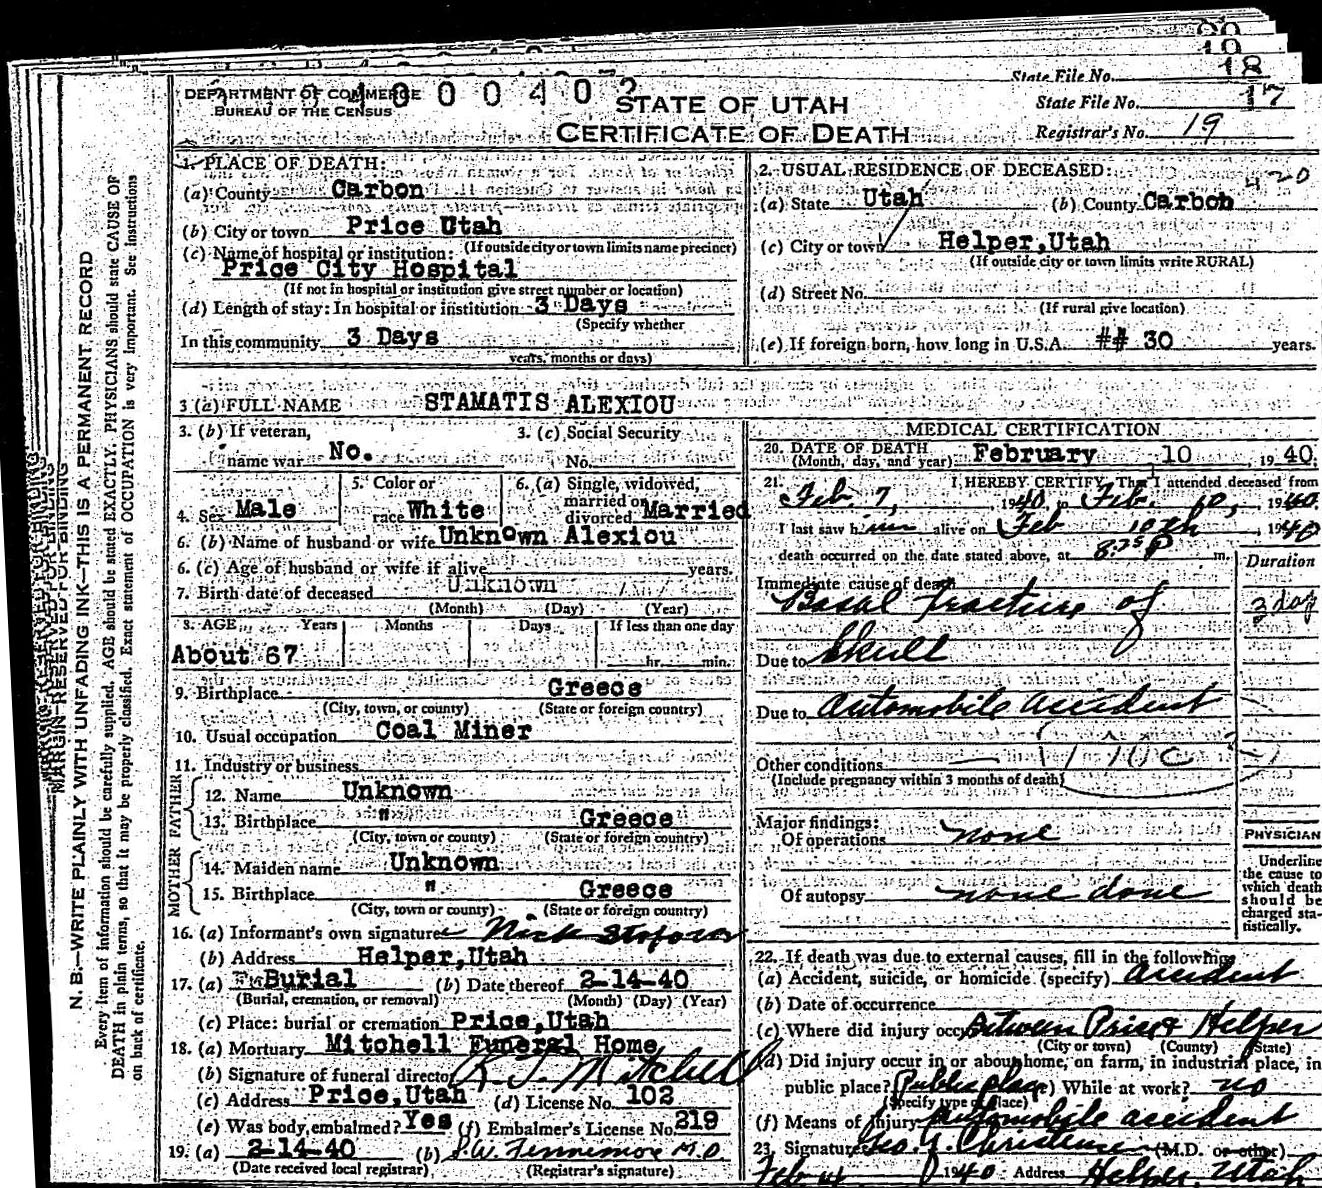 20
19
18
State File No.
DEPARTMENT OF COMMERCE
BUREAU OF THE CENSUS
STATE OF UTAH
CERTIFICATE OF DEATH
State File No. 17
Registrar's No. 19
MARGIN RESERVED FOR BINDING
N. B.—WRITE PLAINLY WITH UNFADING INK—THIS IS A PERMANENT RECORD
Every item of information should be carefully supplied. AGE should be stated EXACTLY. PHYSICIANS should state CAUSE OF
DEATH in plain terms, so that it may be properly classified. Exact statement of OCCUPATION is very important. See Instructions
on back of certificate.
1. PLACE OF DEATH:
(a) County Carbon
(b) City or town Price Utah
(If outside city or town limits name precinct)
(c) Name of hospital or institution:
Price City Hospital
(If not in hospital or institution give street number or location)
(d) Length of stay: In hospital or institution 3 Days
(Specify whether
In this community 3 Days
years, months or days)
2. USUAL RESIDENCE OF DECEASED:
420
(a) State Utah (b) County Carbon
(c) City or town Helper, Utah
(If outside city or town limits write RURAL)
(d) Street No.
(If rural give location)
(e) If foreign born, how long in U.S.A. ## 30 years.
3 (a) FULL NAME STAMATIS ALEXIOU
3. (b) If veteran,
name war No.
3. (c) Social Security
No.
4. Sex Male
5. Color or
race White
6. (a) Single, widowed,
married or
divorced Married
6. (b) Name of husband or wife Unknown Alexiou
6. (c) Age of husband or wife if alive years.
7. Birth date of deceased Unknown
(Month) (Day) (Year)
8. AGE Years Months Days If less than one day
About 67 hr. min.
9. Birthplace Greece
(City, town, or county) (State or foreign country)
10. Usual occupation Coal Miner
11. Industry or business
FATHER
12. Name Unknown
13. Birthplace " Greece
(City, town or county) (State or foreign country)
MOTHER
14. Maiden name Unknown
15. Birthplace " Greece
(City, town or county) (State or foreign country)
16. (a) Informant's own signature Nick
(b) Address Helper, Utah
17. (a) Burial (b) Date thereof 2-14-40
(Burial, cremation, or removal) (Month) (Day) (Year)
(c) Place: burial or cremation Price, Utah
18. (a) Mortuary Mitchell Funeral Home
(b) Signature of funeral director R. J. Mitchell
(c) Address Price, Utah (d) License No. 102
(e) Was body embalmed? Yes (f) Embalmer's License No. 219
19. (a) 2-14-40 (b) S.W. Fennemor M.D.
(Date received local registrar) (Registrar's signature)
MEDICAL CERTIFICATION
20. DATE OF DEATH
(Month, day, and year) February 10, 1940.
21. I HEREBY CERTIFY, That I attended deceased from
Feb. 7, 1940 to Feb. 10, 1940.
I last saw him alive on Feb 10th 1940
death occurred on the date stated above, at 8:25 P m.
Duration
Immediate cause of death
Basal fracture of 3 day
Due to Skull
Due to automobile accident
Other conditions 170c
(Include pregnancy within 3 months of death)
Major findings:
Of operations none
Of autopsy none done
PHYSICIAN
Underline
the cause to
which death
should be
charged sta-
tistically.
22. If death was due to external causes, fill in the following:
(a) Accident, suicide, or homicide (specify) accident
(b) Date of occurrence
(c) Where did injury occur between Price & Helper
(City or town) (County) (State)
(d) Did injury occur in or about home, on farm, in industrial place, in
public place? Public place (e) While at work? no
(Specify type of place)
(f) Means of injury automobile accident
23. Signature Geo. A. Christensen (M.D. or other)
Feb 1940 Address Helper, Utah